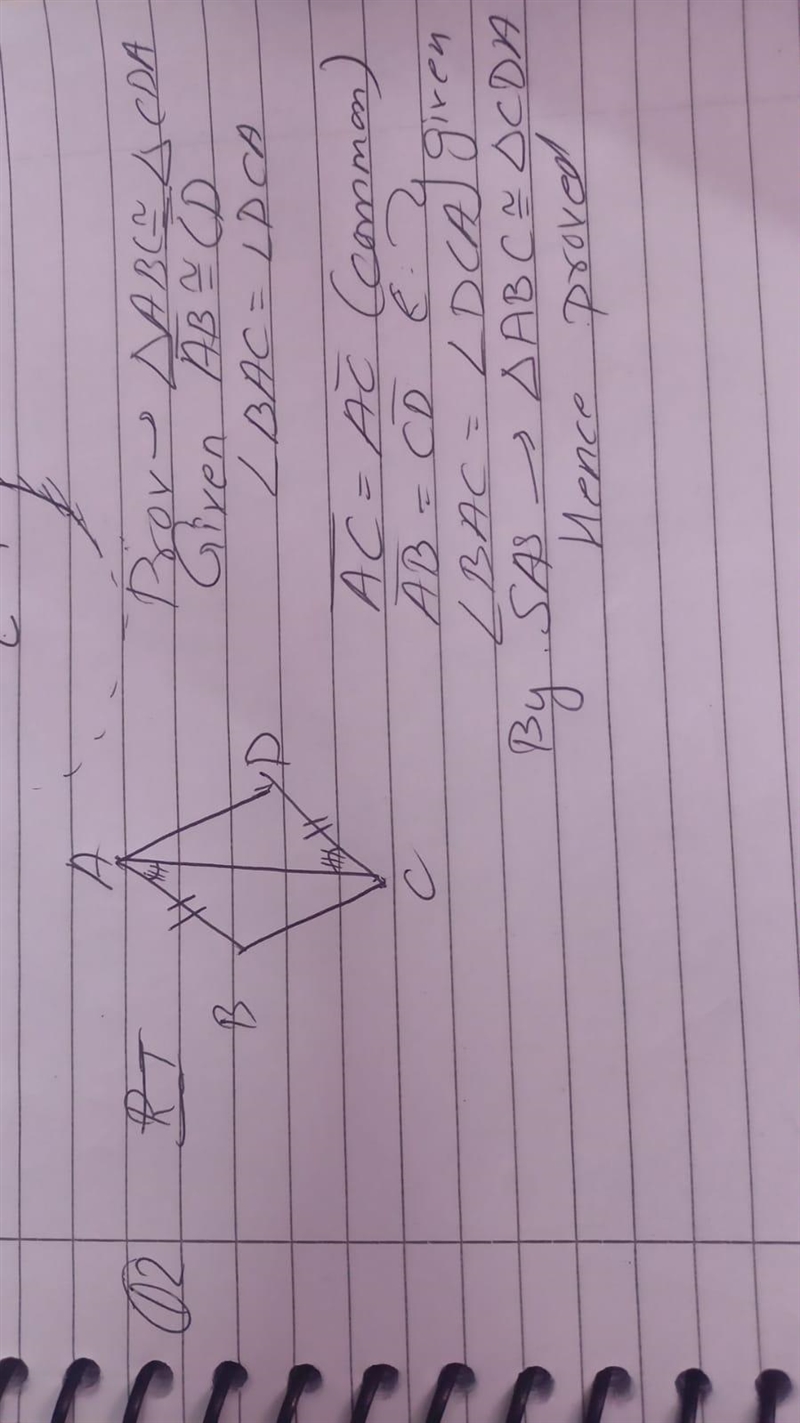 Q2
RT
A
B
D
C
Prov → △ABC ≅ △CDA
Given AB ≅ CD
∠BAC = ∠DCA
AC = AC (common)
AB = CD
∠BAC = ∠DCA given
By SAS → △ABC ≅ △CDA
Hence proved